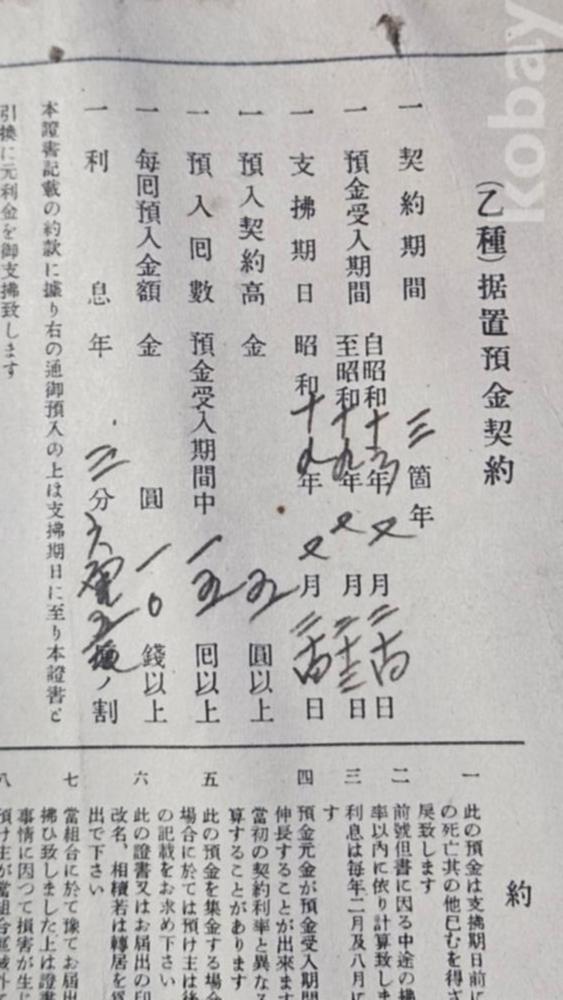 (乙種)据置預金契約
一 契約期間 三箇年
一 預金受入期間 自昭和十六年 月二 日
至昭和十九年 月二十三日
一 支拂期日 昭和十九年 月二 日
一 預入契約高 金 五圓以上
一 預入囘數 預金受入期間中 一五囘以上
一 每囘預入金額 金 圓一〇錢以上
一 利息 年 三分六厘五 ノ割
本證書記載の約款に據り右の通御預入の上は支拂期日に至り本證書と
引換に元利金を御支拂致します
約
一 此の預金は支拂期日前に
の死亡其の他已むを得ざ
戾致します
二 前號但書に因る中途の拂
率以內に依り計算致しま
三 利息は每年二月及八月に
す
四 預金元金が預金受入期間
伸長することが出來ます
當初の契約利率と異なる
算することがあります
五 此の預金を集金する場合
場合に於ては預け主は後
の記載をお求め下さい
六 此の證書又はお届出の印
改名、相續若は轉居を
出で下さい
七 當組合に於て豫てお届出
拂ひ致しました上は證書
事情に因つて損害が生じ
八 預け主が當組合區域外
kobay